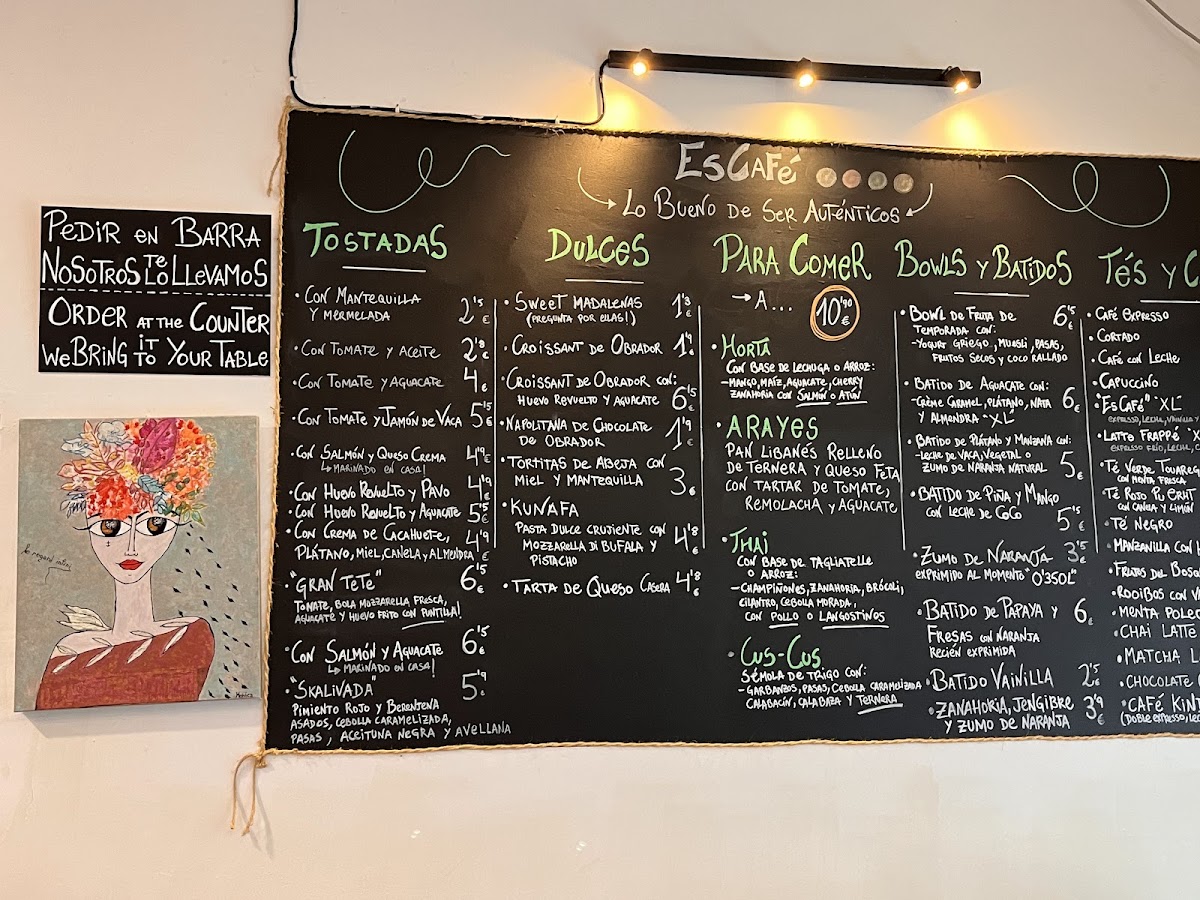 PEDIR EN BARRA
NOSOTROS TE LO LLEVAMOS
ORDER AT THE COUNTER
WE BRING IT TO YOUR TABLE
ESCAFÉ
LO BUENO DE SER AUTÉNTICOS
TOSTADAS
· CON MANTEQUILLA
Y MERMELADA 2'5 €
· CON TOMATE Y ACEITE 2'8 €
· CON TOMATE Y AGUACATE 4 €
· CON TOMATE Y JAMÓN DE VACA 5'5 €
· CON SALMÓN Y QUESO CREMA 4'9 €
↳ MARINADO EN CASA!
· CON HUEVO REVUELTO Y PAVO 4'9 €
· CON HUEVO REVUELTO Y AGUACATE 5'5 €
· CON CREMA DE CACAHUETE, 4'9 €
PLÁTANO, MIEL, CANELA Y ALMENDRA
· "GRAN TETE" 6'5 €
TOMATE, BOLA MOZZARELLA FRESCA,
AGUACATE Y HUEVO FRITO CON PUNTILLA!
· CON SALMÓN Y AGUACATE 6'5 €
↳ MARINADO EN CASA!
· "SKALIVADA" 5'9 €
PIMIENTO ROJO Y BERENJENA
ASADOS, CEBOLLA CARAMELIZADA,
PASAS, ACEITUNA NEGRA Y AVELLANA
DULCES
· SWEET MADALENAS 1'3 €
(PREGUNTA POR ELLAS!)
· CROISSANT DE OBRADOR 1'9 €
· CROISSANT DE OBRADOR CON:
HUEVO REVUELTO Y AGUACATE 6'5 €
· NAPOLITANA DE CHOCOLATE
DE OBRADOR 1'9 €
· TORTITAS DE ABEJA CON
MIEL Y MANTEQUILLA 3 €
· KUNAFA
PASTA DULCE CRUJIENTE CON 4'8 €
MOZZARELLA DI BUFALA Y
PISTACHO
· TARTA DE QUESO CASERA 4'8 €
PARA COMER
→ A... 10'90 €
· HORTA
CON BASE DE LECHUGA O ARROZ:
- MANGO, MAÍZ, AGUACATE, CHERRY
ZANAHORIA CON SALMÓN O ATÚN
· ARAYES
PAN LIBANÉS RELLENO
DE TERNERA Y QUESO FETA
CON TARTAR DE TOMATE,
REMOLACHA Y AGUACATE
· THAI
CON BASE DE TAGLIATELLE
O ARROZ:
- CHAMPIÑONES, ZANAHORIA, BRÓCOLI,
CILANTRO, CEBOLA MORADA,
CON POLLO O LANGOSTINOS
· CUS-CUS
SÉMOLA DE TRIGO CON:
- GARBANZOS, PASAS, CEBOLA CARAMELIZADA
CALABACÍN, CALABAZA Y TERNERA
BOWLS Y BATIDOS
· BOWL DE FRUTA DE 6'5 €
TEMPORADA CON:
- YOGURT GRIEGO, MUESLI, PASAS,
FRUTOS SECOS Y COCO RALLADO
· BATIDO DE AGUACATE CON:
- CRÈME CARAMEL, PLÁTANO, NATA 6 €
Y ALMENDRA "XL"
· BATIDO DE PLÁTANO Y MANZANA CON:
- LECHE DE VACA, VEGETAL O 5 €
ZUMO DE NARANJA NATURAL
· BATIDO DE PIÑA Y MANGO
CON LECHE DE COCO 5'5 €
· ZUMO DE NARANJA 3'5 €
EXPRIMIDO AL MOMENTO "O'3SOL"
· BATIDO DE PAPAYA Y 6 €
FRESAS CON NARANJA
RECIÉN EXPRIMIDA
· BATIDO VAINILLA 2'5 €
· ZANAHORIA, JENGIBRE 3'9 €
Y ZUMO DE NARANJA
TÉS Y C
· CAFÉ EXPRESSO
· CORTADO
· CAFÉ CON LECHE
· CAPUCCINO
· "ESCAFÉ" "XL"
EXPRESSO, LECHE, VAINILLA Y
· LATTO FRAPPÉ "X
EXPRESSO FRÍO, LECHE, C
· TÉ VERDE TOUAREG
CON MENTA FRESCA
· TÉ ROJO PU ERHT
CON CANELA Y LIMÓN
· TÉ NEGRO
· MANZANILLA CON
· FRUTAS DEL BOSQ
· ROOIBOS CON VA
· MENTA POLEO
· CHAI LATTE
· MATCHA L
· CHOCOLATE
· CAFÉ KIN
(DOBLE EXPRESSO, LE